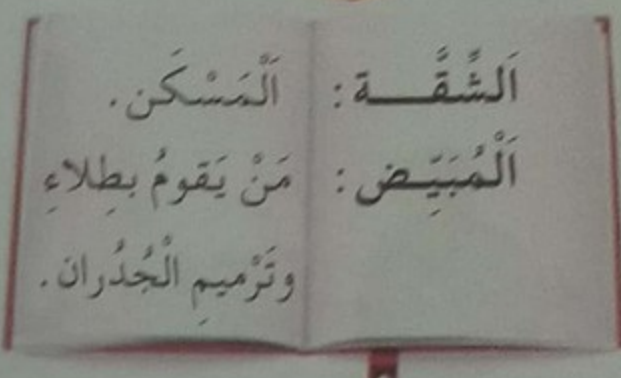 اَلشَّقَّــة : اَلْمَسْكَن.
اَلْمُبَيِّـض : مَنْ يَقومُ بطِلاءِ
وتَرْميمِ الْجُدُران.